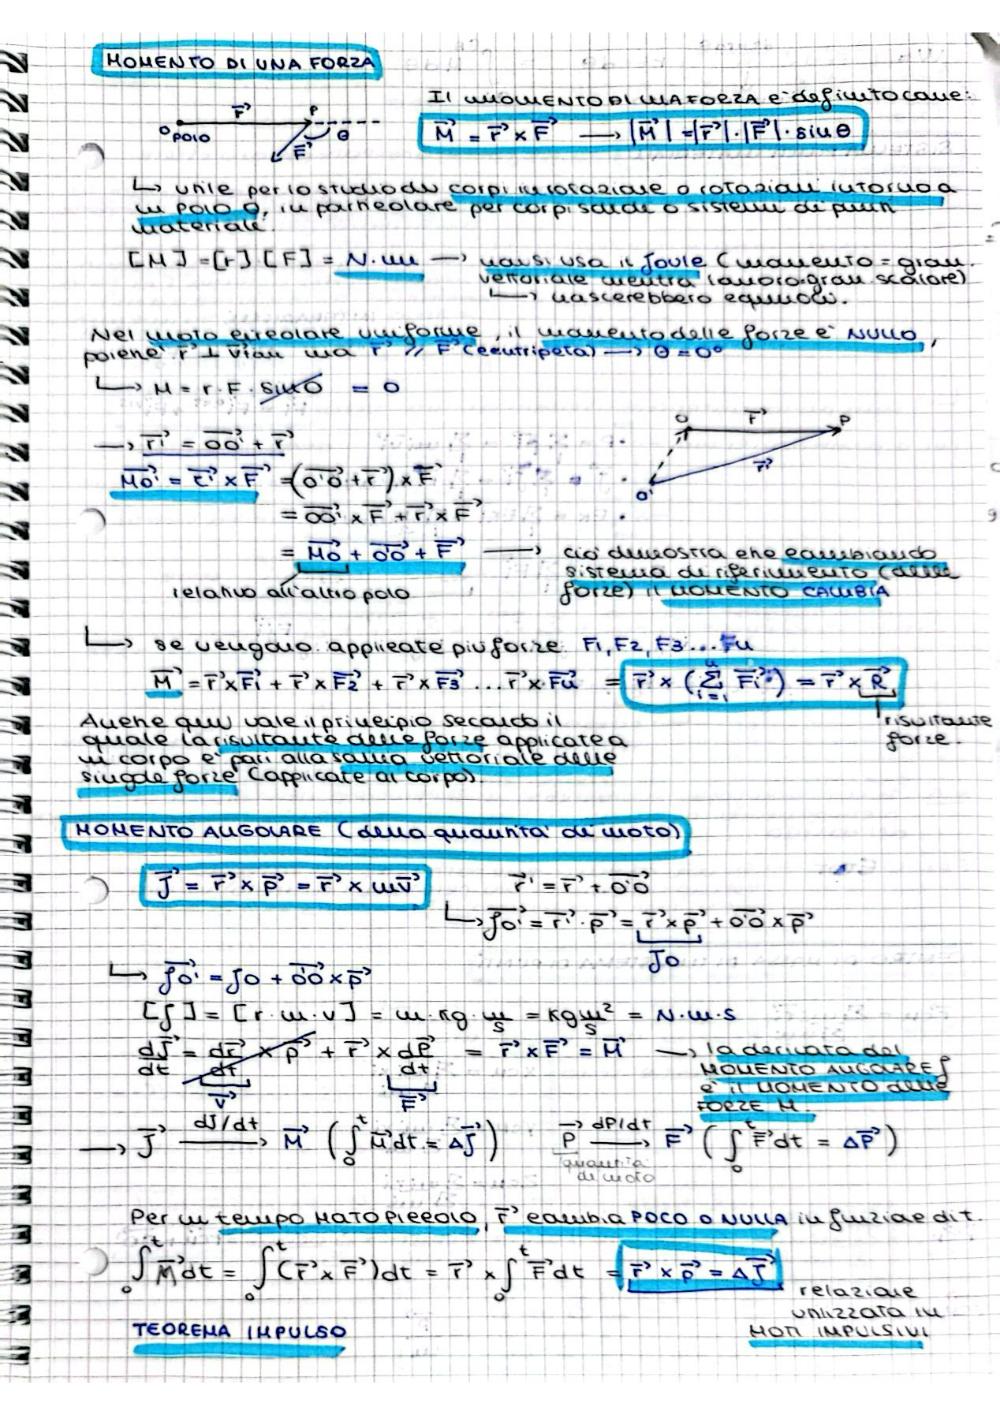 MOMENTO DI UNA FORZA
Il MOMENTO DI UNA FORZA è definito come:
r⃗ P
O POLO F⃗ θ
M⃗ = r⃗ x F⃗ → |M⃗| = |r⃗|·|F⃗|·sinθ
↳ utile per lo studio di corpi in rotazione o rotazioni intorno a
un POLO O, in particolare per corpi solidi o sistemi di punti
materiale.
[M] = [r] [F] = N·m → non si usa il Joule (momento = gran.
vettoriale mentre lavoro = gran scalare)
↳ nascerebbero equivoci.
Nel moto circolare uniforme, il momento delle forze è NULLO,
poiché r⃗ ⊥ v⃗tan ma r⃗ // F⃗ (centripeta) → θ = 0°
↳ M = r·F·sin0 = 0
→ r⃗' = OO'⃗ + r⃗
O r⃗ P
r⃗'
O'
M⃗O' = r⃗' x F⃗ = (O'O⃗ + r⃗) x F⃗
= OO'⃗ x F⃗ + r⃗ x F⃗
= M⃗O + OO'⃗ + F⃗ → ciò dimostra che cambiando
sistema di riferimento (delle
forze) il MOMENTO CAMBIA
relativo all'altro polo
↳ se vengono applicate più forze F1, F2, F3 ... Fn
M⃗ = r⃗ x F⃗1 + r⃗ x F⃗2 + r⃗ x F⃗3 ... r⃗ x F⃗n = r⃗ x (Σⁿᵢ₌₁ F⃗i) = r⃗ x R⃗
risultante
forze.
Anche qui vale il principio secondo il
quale la risultante delle forze applicate a
un corpo è pari alla somma vettoriale delle
singole forze (applicate al corpo).
MOMENTO ANGOLARE (della quantità di moto)
J⃗ = r⃗ x p⃗ = r⃗ x mv⃗
r⃗' = r⃗ + O'O⃗
↳ J⃗O' = r⃗'·p⃗ = r⃗ x p⃗ + O'O⃗ x p⃗
JO
↳ J⃗O' = JO + O'O⃗ x p⃗
[J] = [r·m·v] = m·kg·m/s = kg m²/s = N·m·s
dJ⃗/dt = dr⃗/dt x p⃗ + r⃗ x dP⃗/dt = r⃗ x F⃗ = M⃗ → la derivata del
MOMENTO ANGOLARE J
è il MOMENTO delle
FORZE M.
v⃗ F⃗
→ J⃗ dJ/dt → M⃗ (∫₀ᵗ M⃗dt = ΔJ⃗) P⃗ dP/dt → F⃗ (∫₀ᵗ F⃗dt = ΔP⃗)
quantità
di moto
Per un tempo MOLTO PICCOLO, r⃗ cambia POCO O NULLA in funzione di t.
∫₀ᵗ M⃗dt = ∫₀ᵗ (r⃗ x F⃗)dt = r⃗ x ∫₀ᵗ F⃗dt = r⃗ x p⃗ = ΔJ⃗
relazione
utilizzata in
MOTI IMPULSIVI
TEOREMA IMPULSO